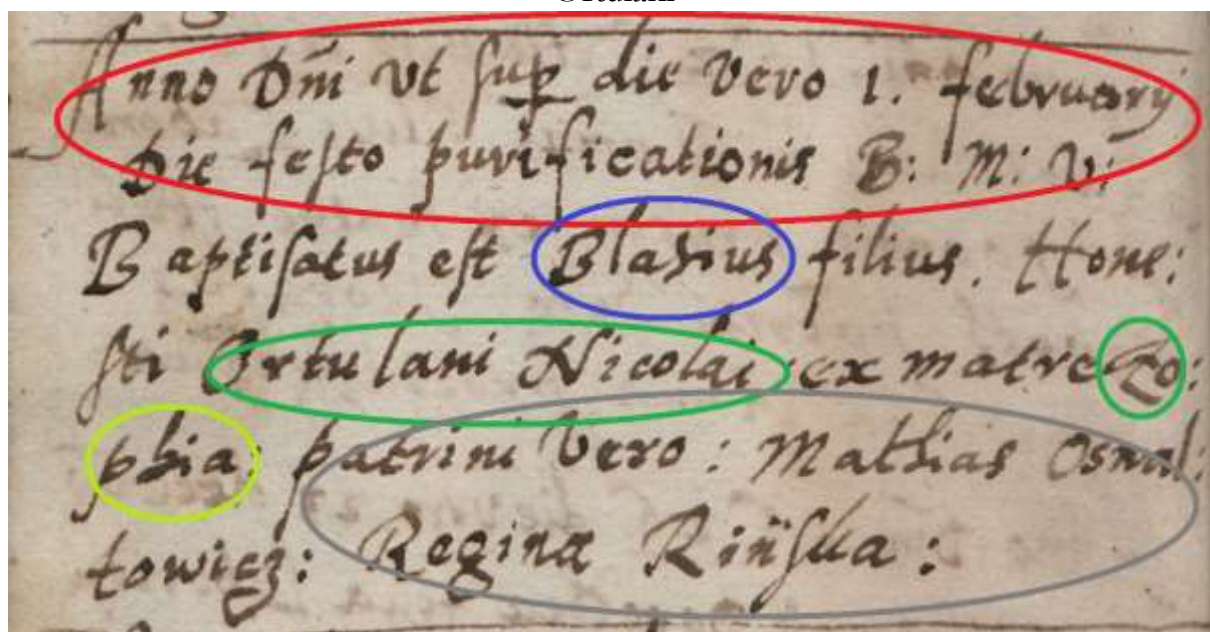 Ortulani
Anno Dñi vt sup die vero 1. february
Die festo purificationis B: M: V:
Baptisatus est Blasius filius. Hone:
sti Ortulani Nicolai ex matre Zo:
phia: patrini vero: Mathias
towicz: Regina Rińska: